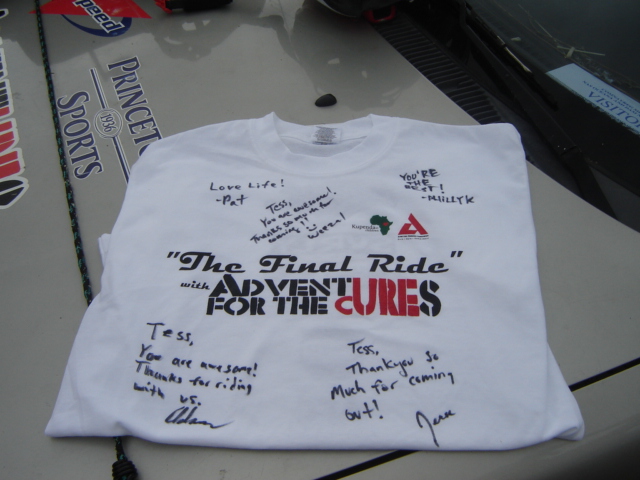 Speed
PRINCETON
1936
SPORTS
Love Life!
-Pat
Tess,
You are awesome!
Thanks so much for
coming!!
Weeza!
YOU'RE
THE
BEST!
-MILLYK
Kupenda
"The Final Ride"
with ADVENTURES
FOR THE CURES
Tess,
You are awesome!
Thanks for riding
with us.
Adam
Tess,
Thankyou so
Much for coming
out!